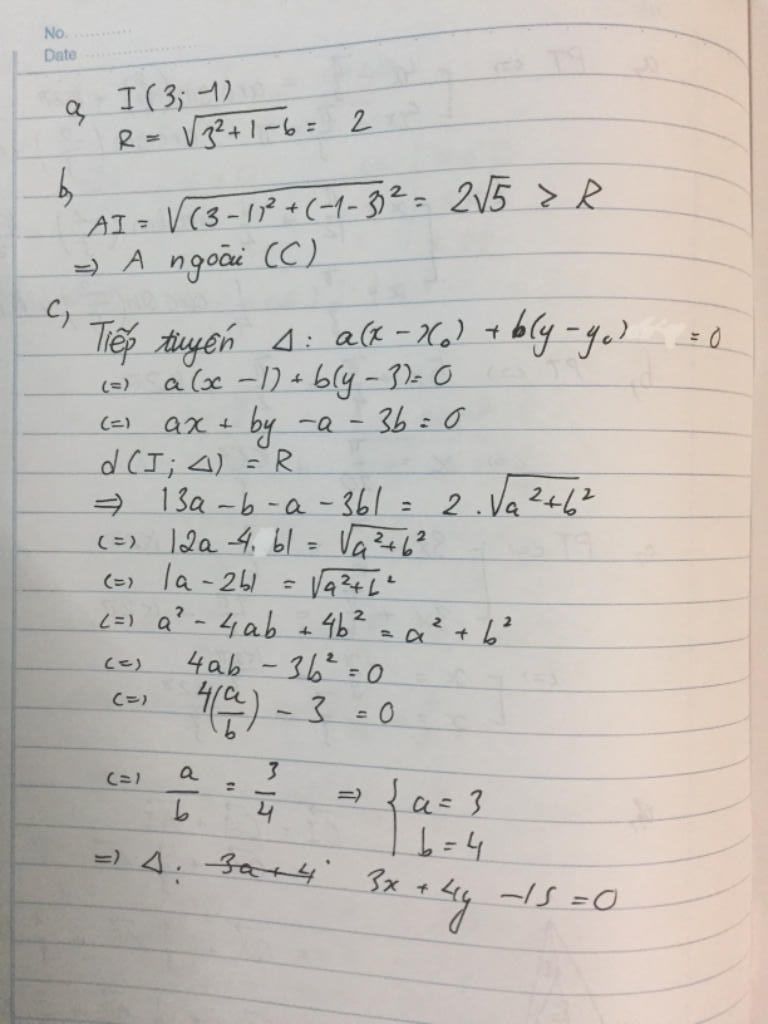 No. ............
Date ........................
a, I(3; -1)
R = √(3² + 1 - 6) = 2
b,
AI = √((3 - 1)² + (-1 - 3)²) = 2√5 > R
=> A ngoài (C)
c,
Tiếp tuyến Δ: a(x - x₀) + b(y - y₀) = 0
(=) a(x - 1) + b(y - 3) = 0
(=) ax + by - a - 3b = 0
d(I; Δ) = R
=> |3a - b - a - 3b| = 2.√(a² + b²)
(=) |2a - 4b| = √(a² + b²)
(=) |a - 2b| = √(a² + b²)
(=) a² - 4ab + 4b² = a² + b²
(=) 4ab - 3b² = 0
(=) 4(a/b) - 3 = 0
(=) a/b = 3/4 => { a = 3
b = 4
=> Δ: 3a + 4 3x + 4y - 15 = 0